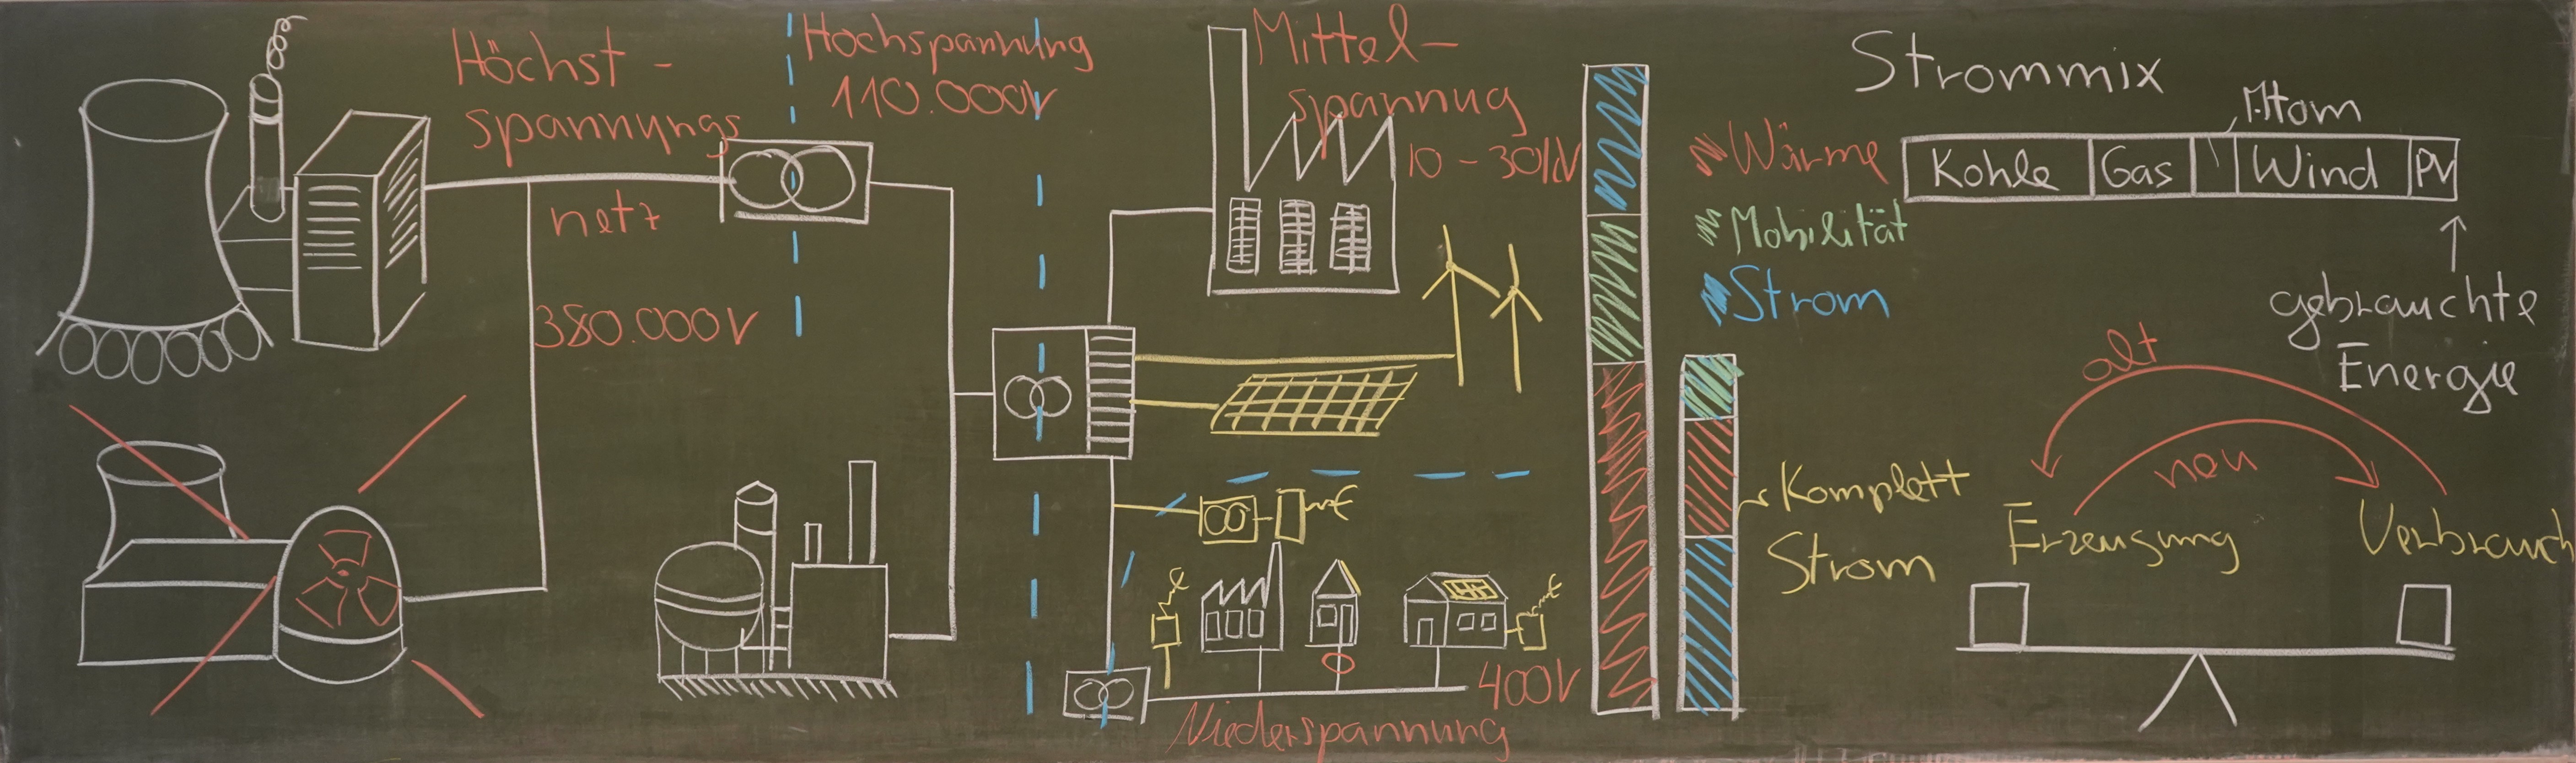 Höchst-
spannungs
netz
380.000V
Hochspannung
110.000V
Mittel-
spannug
10-30kV
400V
Niederspannung
Wärme
Mobilität
Strom
Komplett
Strom
Strommix
Atom
Kohle Gas Wind PV
gebrauchte
Energie
alt
neu
Erzeugung
Verbrauch